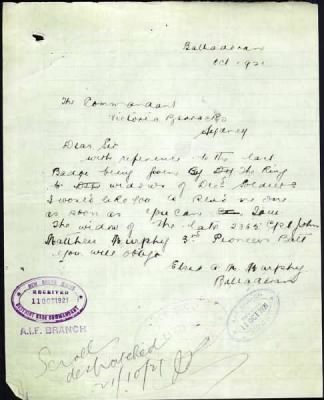 Balladoran
Oct 1921
The Commandant
Victoria Barracks
Sydney
Dear Sir
with reference to the last
Badge being given By the King
to widows of Dec'd Soldiers
I would like you to send me one
as soon as you can
The widow of the late 2365 Cpl John
Matthew Murphy 3rd Pioneer Batt
you will oblige
Murphy
Balladoran
NEW SOUTH WALES
RECEIVED
11 OCT 1921
DISTRICT BASE COMMANDANT
A.I.F. BRANCH
11 OCT 1921
Scroll
despatched
21/10/21